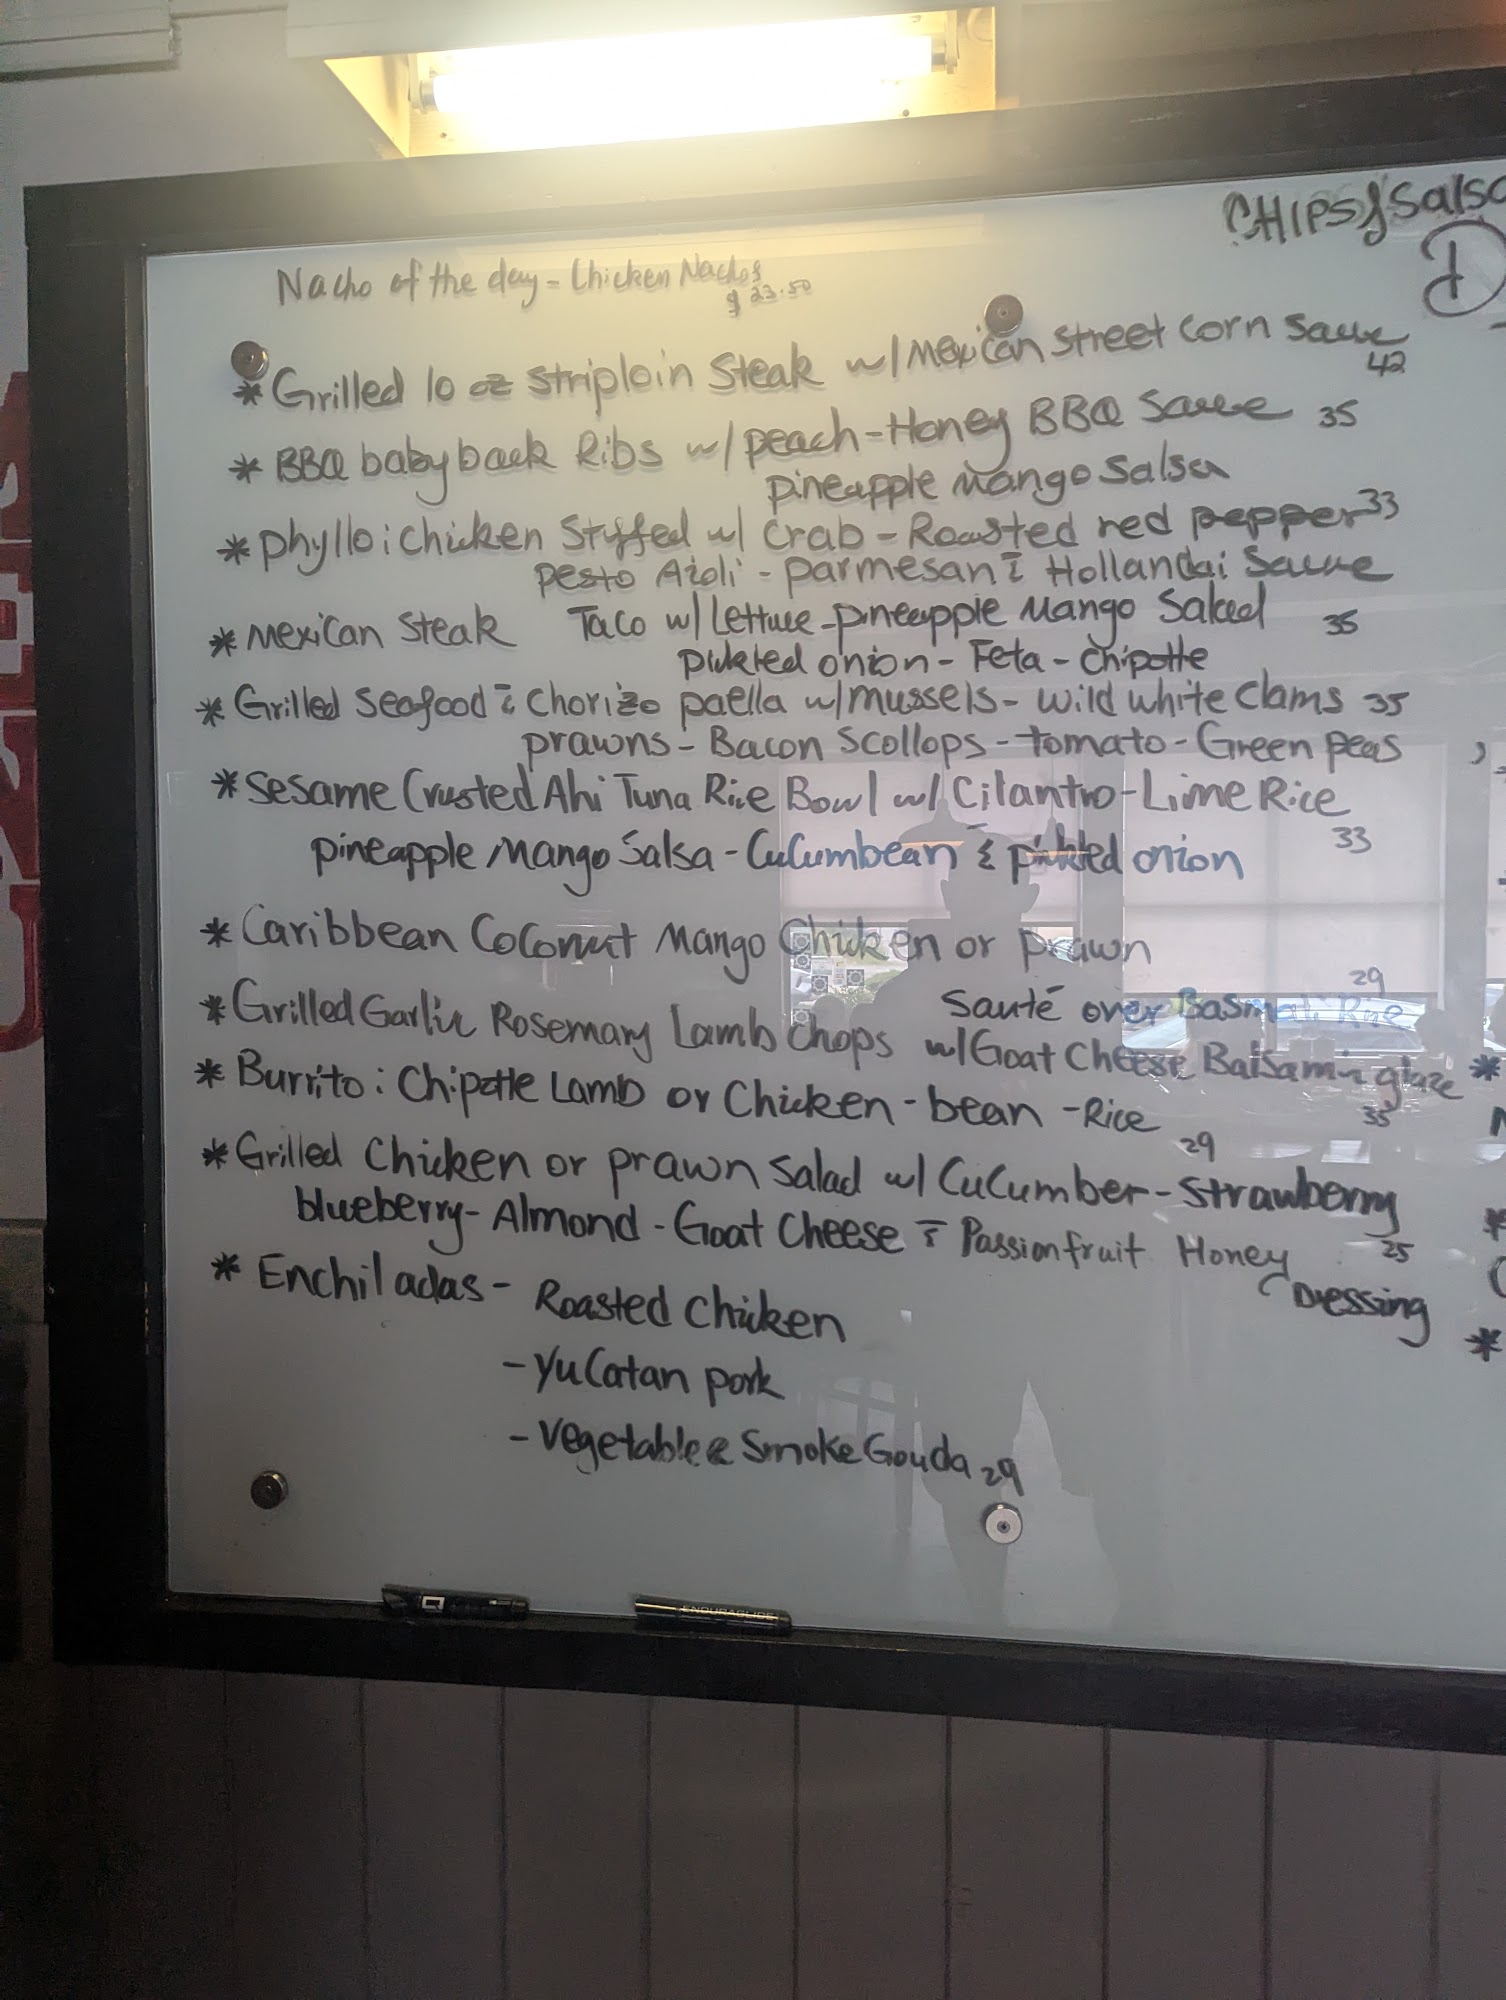 CHIPS & Salsa
D
Nacho of the day - Chicken Nachos
$ 23.50
* Grilled 10 oz Striploin Steak w/ Mexican Street Corn Sauce
42
* BBQ baby back Ribs w/ peach-Honey BBQ Sauce 35
pineapple Mango Salsa
* phyllo: Chicken Stuffed w/ Crab - Roasted red pepper 33
pesto Aioli - parmesan & Hollandai Sauce
* Mexican Steak Taco w/ Lettuce - pineapple Mango Salad 35
pickled onion - Feta - Chipotle
* Grilled Seafood & Chorizo paella w/ Mussels - wild white Clams 35
prawns - Bacon Scollops - tomato - Green peas
* Sesame Crusted Ahi Tuna Rice Bowl w/ Cilantro-Lime Rice
pineapple Mango Salsa - Cucumbean & pickled onion 33
* Caribbean Coconut Mango Chicken or prawn
Sauté over Basmati Rice 29
* Grilled Garlic Rosemary Lamb Chops w/ Goat Cheese Balsamic glaze
35
* Burrito: Chipotle Lamb or Chicken - bean - Rice
29
* Grilled Chicken or prawn Salad w/ Cucumber - Strawberry
blueberry - Almond - Goat Cheese & Passionfruit Honey 25
Dressing
* Enchiladas - Roasted Chicken
- Yucatan pork
- Vegetable & Smoke Gouda 29
ENDURAGLIDE